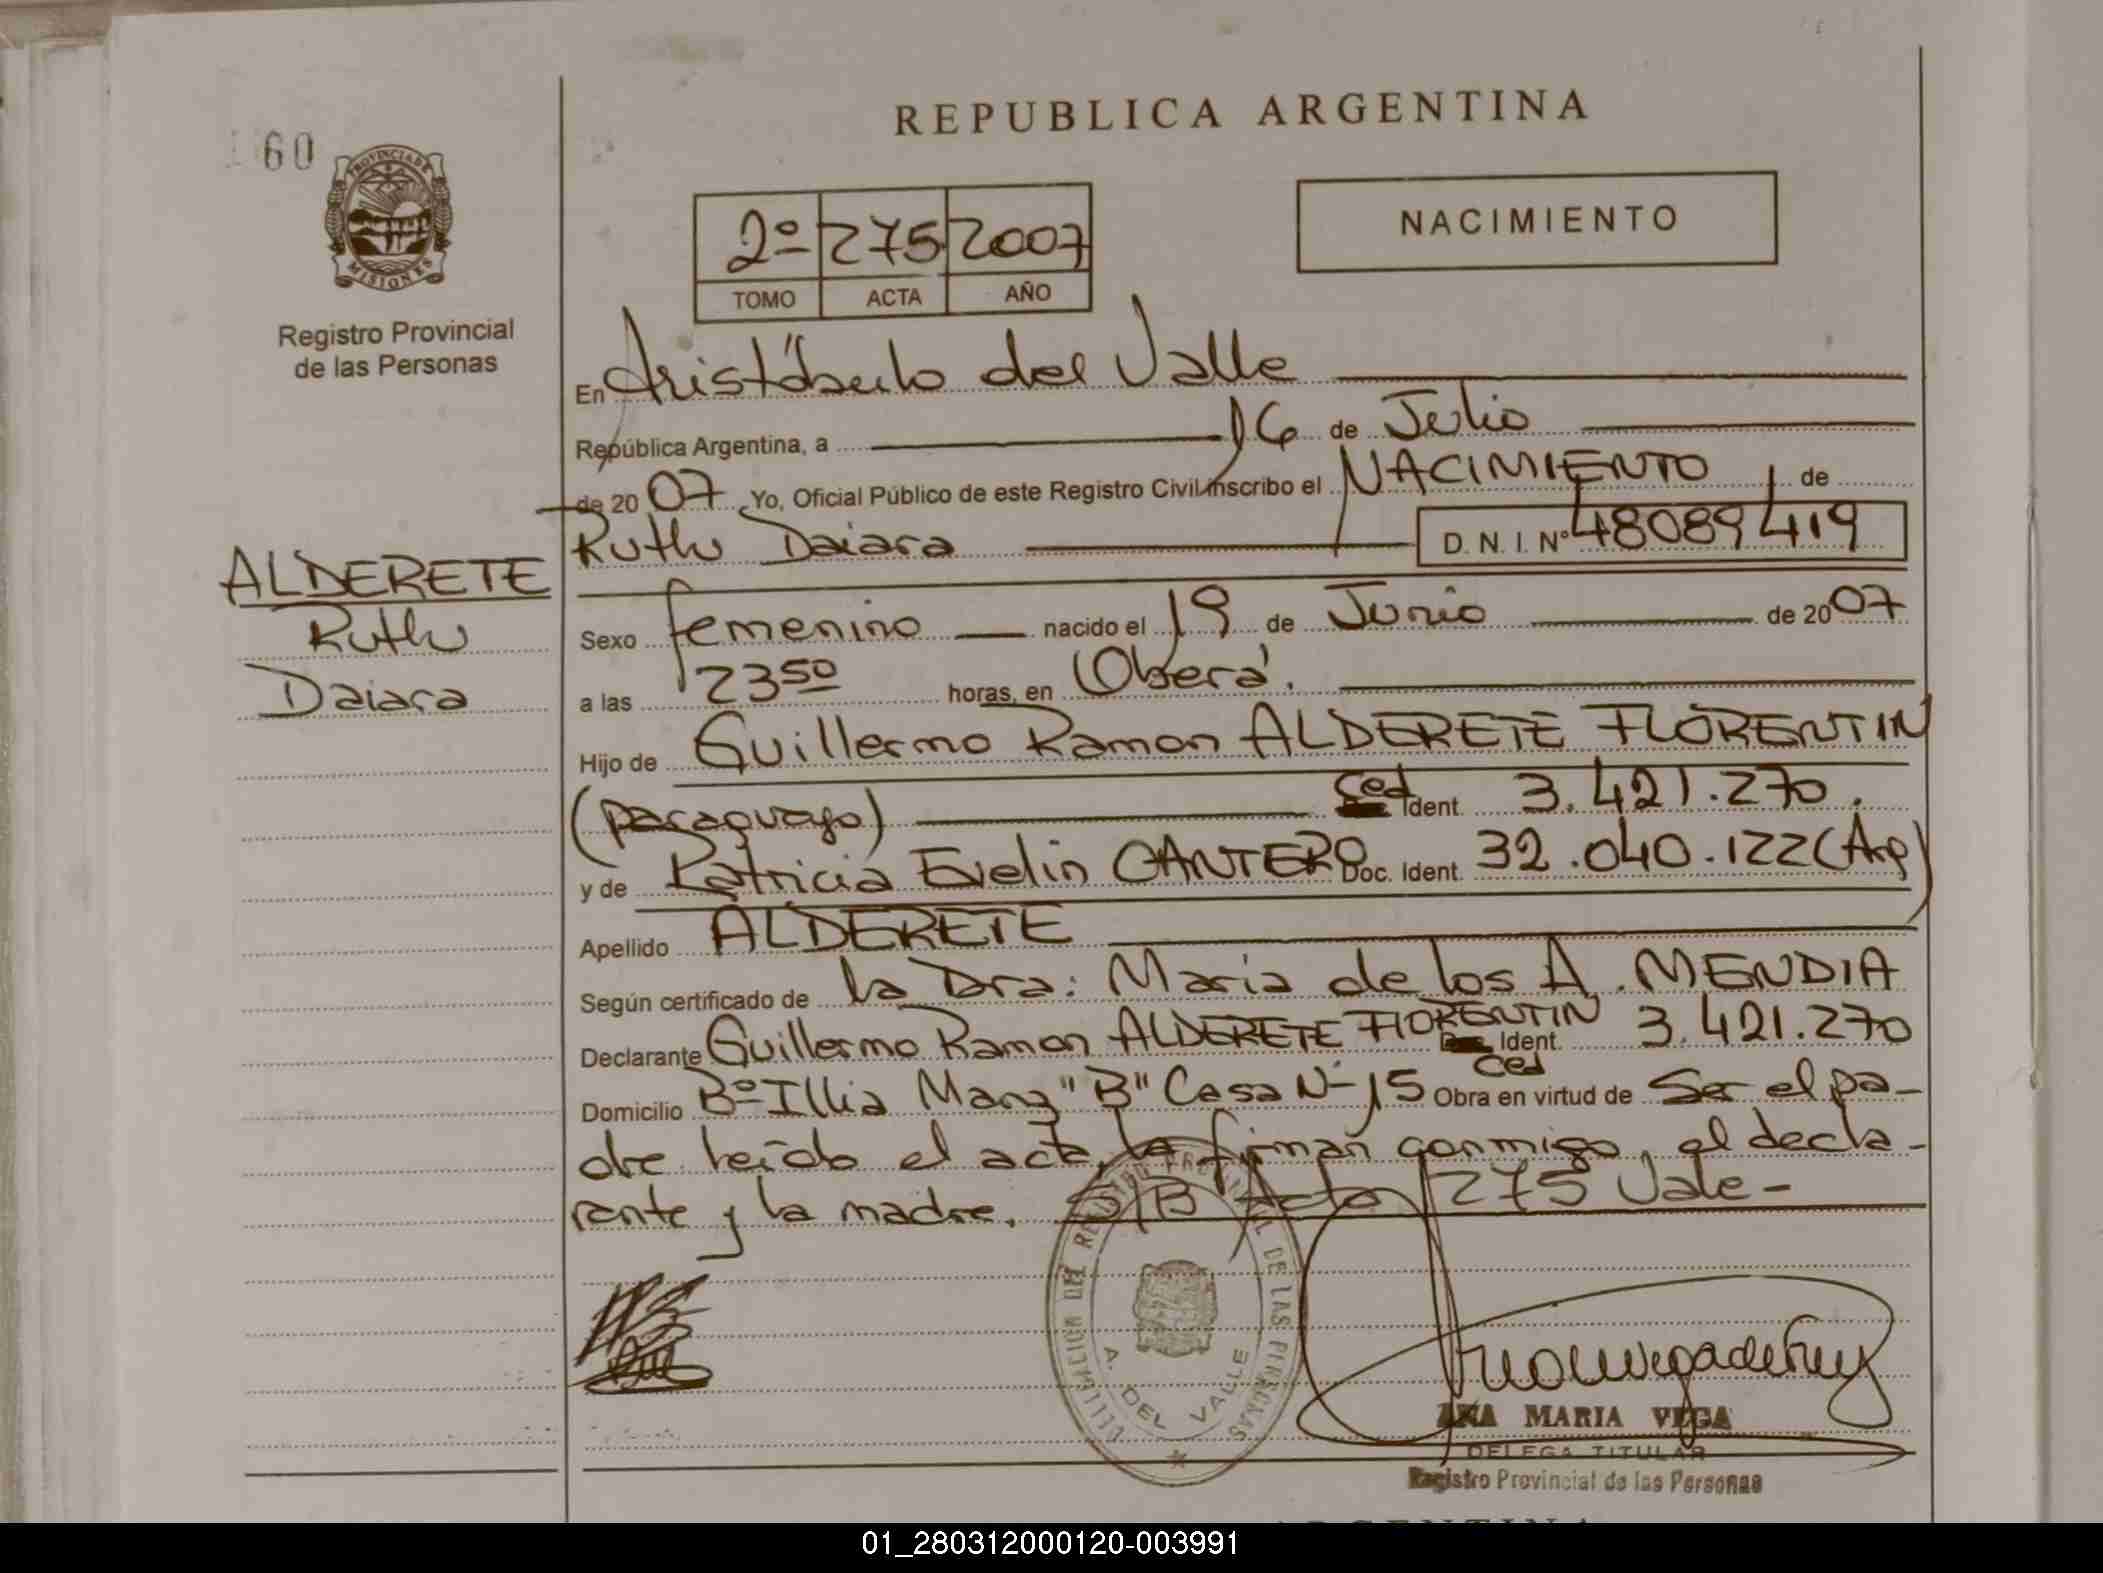 REPUBLICA ARGENTINA
60
PROVINCIA DE
MISIONES
Registro Provincial
de las Personas
2º 275 2007
TOMO ACTA AÑO
NACIMIENTO
En Aristóbulo del Valle
República Argentina, a 16 de Julio
de 2007 Yo, Oficial Público de este Registro Civil inscribo el NACIMIENTO de
Ruth Daiara D. N. I. Nº 48089419
ALDERETE
Ruth
Daiara
Sexo femenino nacido el 19 de Junio de 2007
a las 23 50 horas, en Oberá.
Hijo de Guillermo Ramon ALDERETE FLORENTIN
(paraguayo) Ced Ident. 3.421.270.
y de Patricia Evelin CANTERO Doc. Ident. 32.040.122 (Arg)
Apellido ALDERETE
Según certificado de la Dra: Maria de los A. MENDIA
Declarante Guillermo Ramon ALDERETE FLORENTIN Ident. 3.421.270
Ced
Domicilio Bº Illia Manz "B" Casa Nº 15 Obra en virtud de Ser el pa-
dre. leido el acta, la firman conmigo, el decla-
rante y la madre. S/B Acta 275 Vale-
REGISTRO PROVINCIAL DE LAS PERSONAS
A. DEL VALLE
ANA MARIA VEGA
DELEGA TITULAR
Registro Provincial de las Personas
ARGENTINA
01_280312000120-003991